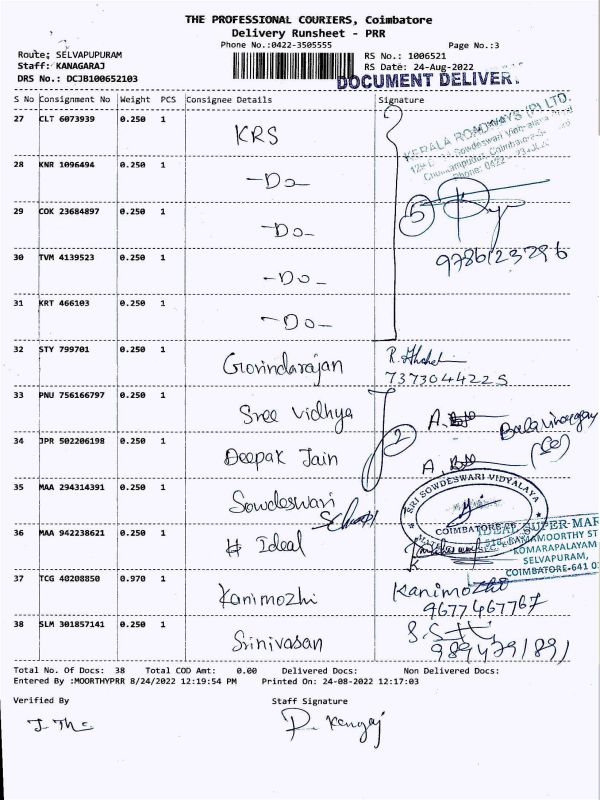 THE PROFESSIONAL COURIERS, Coimbatore
Delivery Runsheet - PRR
Phone No.:0422-3505555 Page No.:3
Route: SELVAPUPURAM RS No.: 1006521
Staff: KANAGARAJ RS Date: 24-Aug-2022
DRS No.: DCJB100652103 DOCUMENT DELIVER.
S No Consignment No Weight PCS Consignee Details Signature
27 CLT 6073939 0.250 1 KRS
KERALA ROADWAYS (P) LTD.
28 KNR 1096494 0.250 1 -Do-
5
29 COK 23684897 0.250 1 -Do-
30 TVM 4139523 0.250 1 -Do- 9786123296
31 KRT 466103 0.250 1 -Do-
32 STY 799701 0.250 1 Govindarajan
7373044225
33 PNU 756166797 0.250 1 Sree Vidhya
34 JPR 502206198 0.250 1 Deepak Jain 2
35 MAA 294314391 0.250 1 Sowdeswari School
SRI SOWDESWARI VIDYALAYA
COIMBATORE
36 MAA 942238621 0.250 1 # Ideal
IDEAL SUPER-MAR
RAMAMOORTHY ST
KOMARAPALAYAM
SELVAPURAM,
COIMBATORE-641 0
37 TCG 40208850 0.970 1 Kanimozhi Kanimozhi
9677467767
38 SLM 301857141 0.250 1 Srinivasan
Total No. Of Docs: 38 Total COD Amt: 0.00 Delivered Docs: Non Delivered Docs:
Entered By :MOORTHYPRR 8/24/2022 12:19:54 PM Printed On: 24-08-2022 12:17:03
Verified By Staff Signature